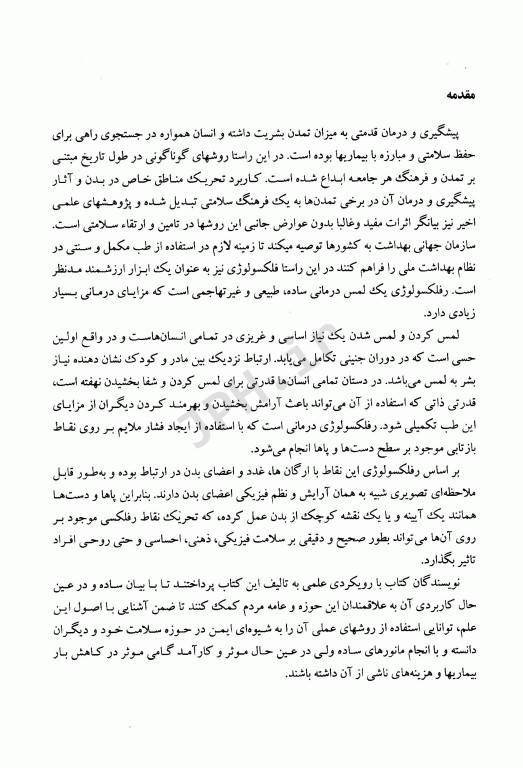 مقدمه
پیشگیری و درمان قدمتی به میزان تمدن بشریت داشته و انسان همواره در جستجوی راهی برای
حفظ سلامتی و مبارزه با بیماریها بوده است. در این راستا روشهای گوناگونی در طول تاریخ مبتنی
بر تمدن و فرهنگ هر جامعه ابداع شده است. کاربرد تحریک مناطق خاص در بدن و آثار
پیشگیری و درمان آن در برخی تمدن‌ها به یک فرهنگ سلامتی تبدیل شده و پژوهشهای علمی
اخیر نیز بیانگر اثرات مفید وغالبا بدون عوارض جانبی این روشها در تامین و ارتقاء سلامتی است.
سازمان جهانی بهداشت به کشورها توصیه میکند تا زمینه لازم در استفاده از طب مکمل و سنتی در
نظام بهداشت ملی را فراهم کنند در این راستا فلکسولوژی نیز به عنوان یک ابزار ارزشمند مدنظر
است. رفلکسولوژی یک لمس درمانی ساده، طبیعی و غیرتهاجمی است که مزایای درمانی بسیار
زیادی دارد.
لمس کردن و لمس شدن یک نیاز اساسی و غریزی در تمامی انسان‌هاست و در واقع اولین
حسی است که در دوران جنینی تکامل می‌یابد. ارتباط نزدیک بین مادر و کودک نشان دهنده نیاز
بشر به لمس می‌باشد. در دستان تمامی انسان‌ها قدرتی برای لمس کردن و شفا بخشیدن نهفته است،
قدرتی ذاتی که استفاده از آن می‌تواند باعث آرامش بخشیدن و بهرمند کردن دیگران از مزایای
این طب تکمیلی شود. رفلکسولوژی درمانی است که با استفاده از ایجاد فشار ملایم بر روی نقاط
بازتابی موجود بر سطح دست‌ها و پاها انجام می‌شود.
بر اساس رفلکسولوژی این نقاط با ارگان ها، غدد و اعضای بدن در ارتباط بوده و به‌طور قابل
ملاحظه‌ای تصویری شبیه به همان آرایش و نظم فیزیکی اعضای بدن دارند. بنابراین پاها و دست‌ها
همانند یک آیینه و یا یک نقشه کوچک از بدن عمل کرده، که تحریک نقاط رفلکسی موجود بر
روی آن‌ها می‌تواند بطور صحیح و دقیقی بر سلامت فیزیکی، ذهنی، احساسی و حتی روحی افراد
تاثیر بگذارد.
نویسندگان کتاب با رویکردی علمی به تالیف این کتاب پرداختند تا با بیان ساده و در عین
حال کاربردی آن به علاقمندان این حوزه و عامه مردم کمک کنند تا ضمن آشنایی با اصول این
علم، توانایی استفاده از روشهای عملی آن را به شیوه‌ای ایمن در حوزه سلامت خود و دیگران
دانسته و با انجام مانورهای ساده ولی در عین حال موثر و کارآمد گامی موثر در کاهش بار
بیماریها و هزینه‌های ناشی از آن داشته باشند.